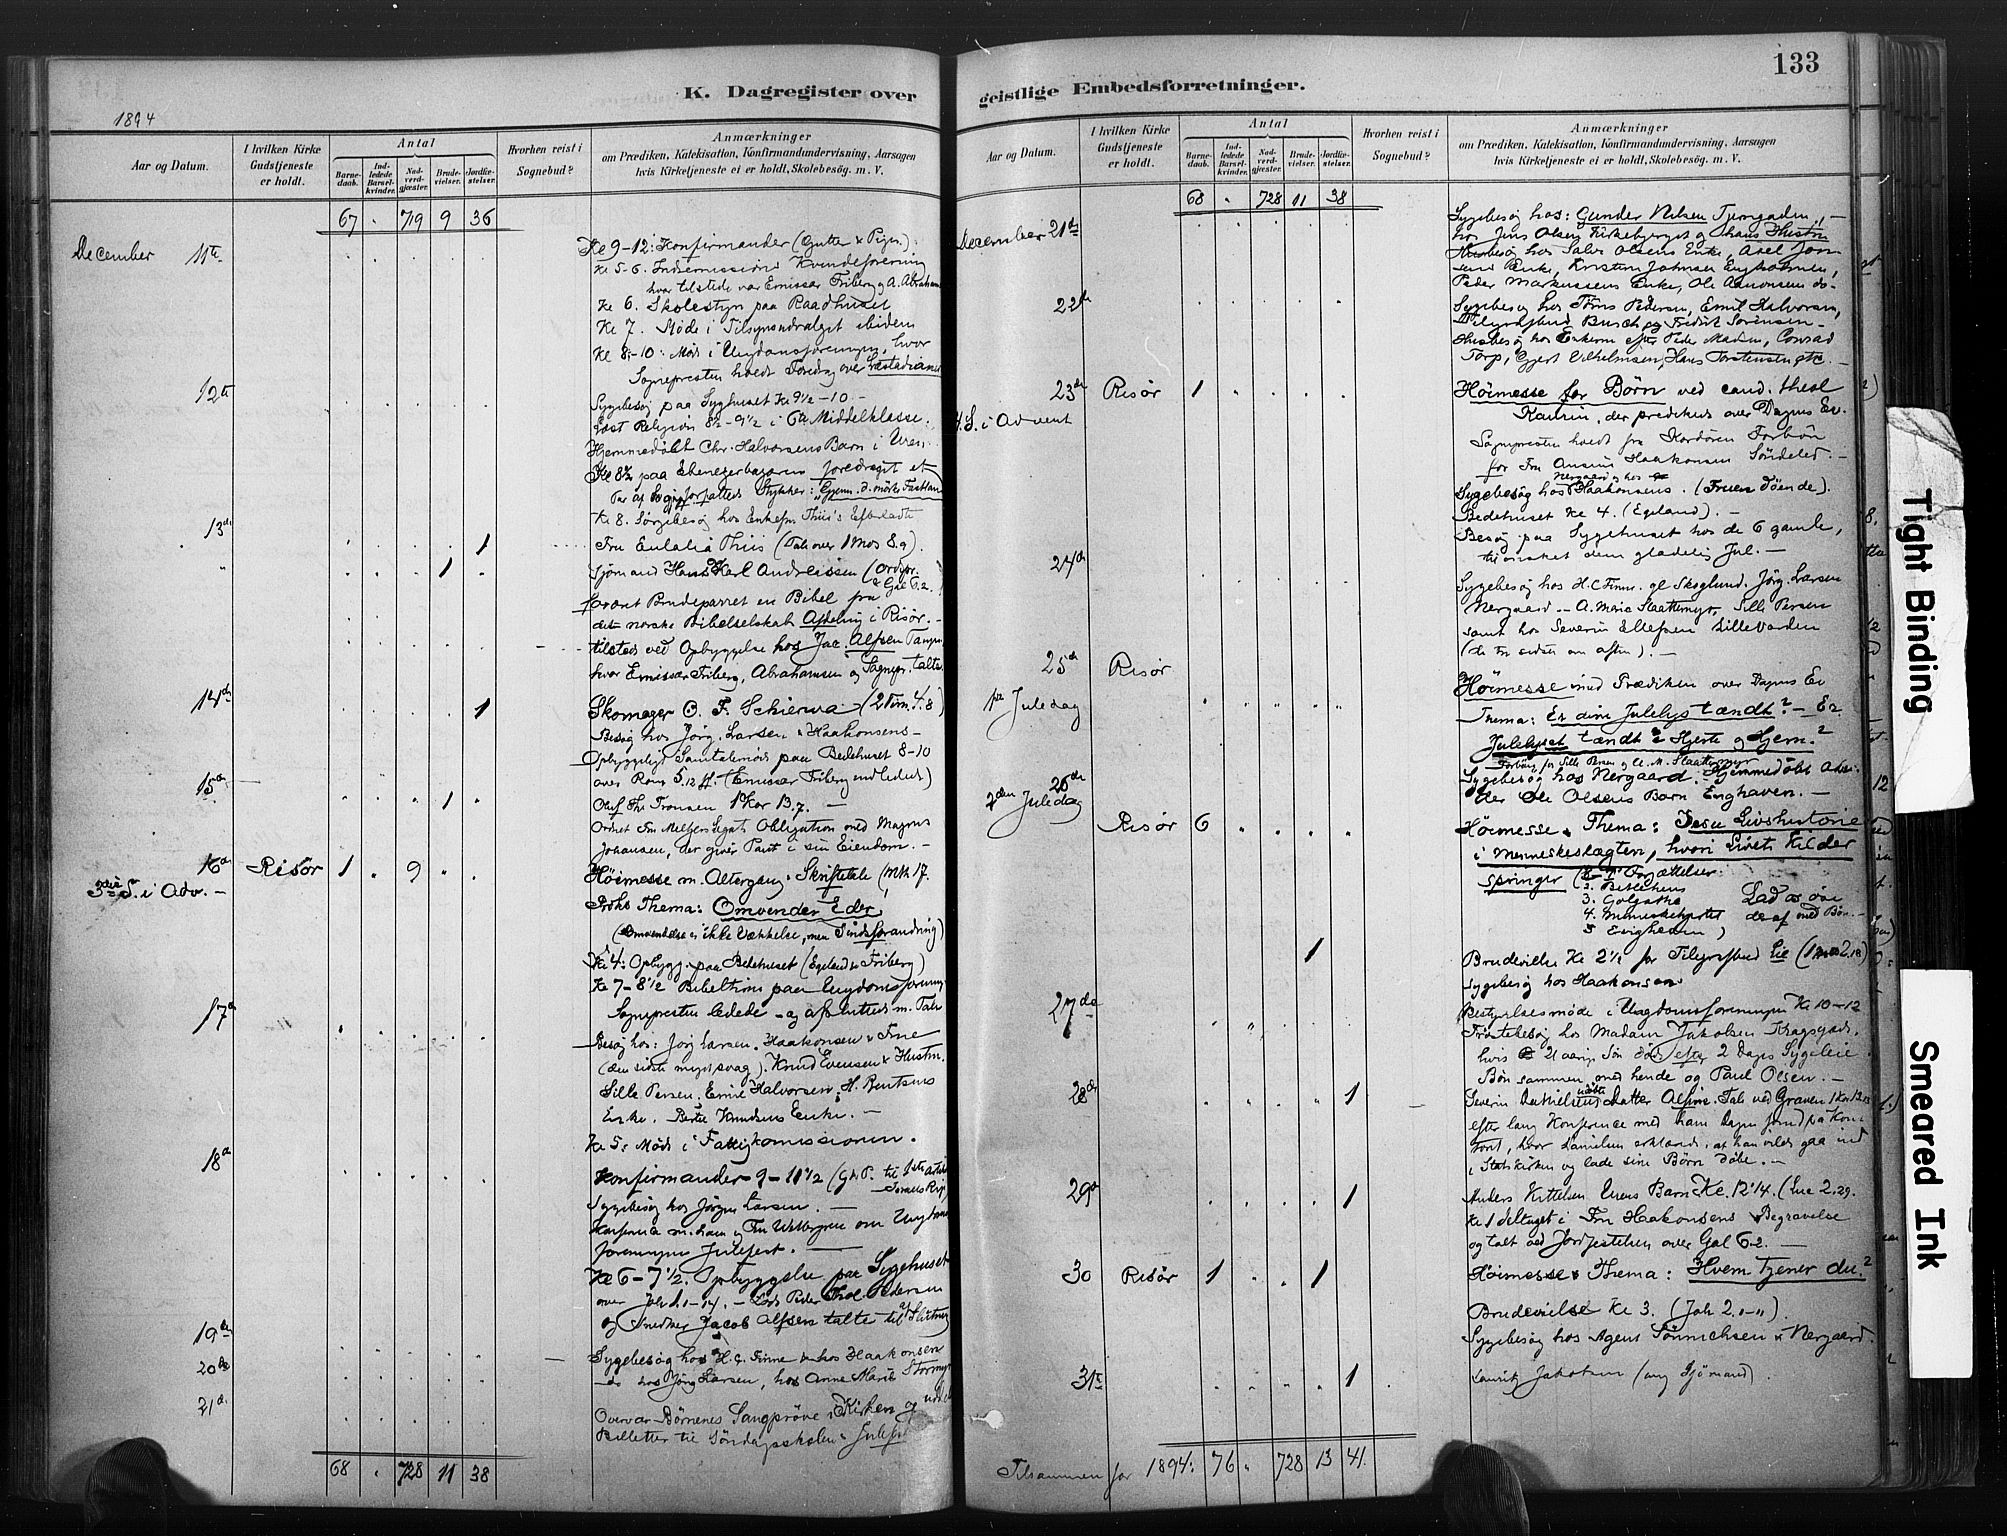 133
K. Dagregister over geistlige Embedsforretninger.
1894
Aar og Datum.
I hvilken Kirke Gudstjeneste er holdt.
Antal
Barnedaab.
Indledede Barselkvinder.
Nadverdgjæster.
Brudevielser.
Jordfæstelser.
Hvorhen reist i Sognebud?
Anmærkninger
om Prædiken, Katekisation, Konfirmandundervisning, Aarsagen
hvis Kirketjeneste ei er holdt, Skolebesøg. m. V.
67 " 719 9 36
December 11te
Kl 9-12: Konfirmander (Gutter & Piger).
Kl 5-6. Indremissions Kvindeforening
hvor tilstede var Emissær Friberg og A. Abraham
Kl 6. Skolestyr paa Raadhuset
Kl 7. Møde i Tilsynsudvalget ibidem
Kl 8-10: Møde i Ungdomsforeningen, hvor
Sognepresten holdt Foredrag over Læstadianer
12te
Sygebesøg paa Syghuset Kl 9½-10-
Læst Religion 8½-9½ i 6te Middelklasse.
Hjemmedøbt Chr. Halvorsens Barn i Uren.
Kl 8½ paa Ebenezerbazaren foredraget et
Par af forfattede Stykker: "Gjenn. d. mørke Fastland
13de
Kl 8. Sørgebesøg hos Enkefru Thiis's Efterladte
1
Fru Eulalia Thiis (Tale over 1 Mos 8.9).
" 1
Sjømand Hans Karl Andreissen (Ordspr.
& Gal 6.2.
foræret Brudeparret en Bibel fra
det norske Bibelselskab Afdeling i Risør.-
tilstede ved Opbyggelse hos Jac. Alfsen
hvor Emissær Friberg, Abrahamsen og Sognepr. talte
14de
1
Skomager O. F. Schierwa (2 Tim. 4.8)
Besøg hos Jørg. Larsen & Haakonsens-
Opbyggeligt Samtalemøde paa Bedehuset 8-10
over Rom 5.12 ff. (Emissær Friberg indledede)
15de
1
Oluf Th. Tronsen 1 Kor 13.7. -
Ordnet Fru Meltzers Legats Obligation med Magnus
Johansen, der giver Pant i sin Eiendom.-
16de Risør 1 " 9 "
3die S. i Adv.-
Høimesse m. Altergang & Skriftetale (Mth 17.
Thema: Omvender Eder
(Omvendelse ei ikke Vækkelse, men Sindsforandring)
Kl 4: Opbygg. paa Bedehuset (Egeland & Friberg)
Kl 7-8½ Bibeltime paa Ungdomsforening
Sognepresten ledede - og afsluttede m. Tale
17de
Besøg hos: Jørg Larsen. Haakonsen & Frue
(den sidste meget svag). Knud Evensen & Hustru.
Sille Persen. Emil Halvorsen. H. Rentsens
Enke. Berte Knudsens Enke. -
Kl 5: Møde i Fattigkomissionen.
18de
Konfirmander 9-11½
Sygebesøg hos Jørgen Larsen. -
Konferents m. ham og Fru om Ungdoms
foreningens Julefest. -
Kl 6-7½. Opbyggelse paa Sygehuset
over Joh 1.1-14. - Lods Peder Pedersen
og Snedker Jacob Alfsen talte til Slutning
19de
Sygebesøg hos H. C. Finne & hos Haakonsen
20de
- do hos Jørg Larsen, hos Anne Marie
21de
Overvar Børnenes Sangprøve i Kirken og
Billetter til Søndagsskolens
68 " 728 11 38
Aar og Datum.
I hvilken Kirke Gudstjeneste er holdt.
Antal
Barnedaab.
Indledede Barselkvinder.
Nadverdgjæster.
Brudevielser.
Jordfæstelser.
Hvorhen reist i Sognebud?
Anmærkninger
om Prædiken, Katekisation, Konfirmandundervisning, Aarsagen
hvis Kirketjeneste ei er holdt, Skolebesøg. m. V.
68 " 728 11 38
December 21de
Sygebesøg hos: Gunder Nilsen Tjerngaden, -
hos Jens Olsen Kirkebjerget og hans Hustru
Husbesøg hos Salve Olsens Enke, Axel Jon
sens Enke, Kristen Johnsen Engholmen,
Peder Markussens Enke, Ole Aanonsen do-
22de
Sygebesøg hos Tønes Pedersen, Emil Halvorsen,
Telegrafbud Busch og Fredrik Sørensen-
Husbesøg hos Enkerne efter Peder Madsen, Conrad
Torp, Gjert Vilhelmsen, Hans Torstensen etc. -
23de Risør 1
4. S. i Advent
Høimesse for Børn ved cand. theol
Kaurin, der prædikede over Dagens Ev.
Sognepresten holdt fra Kordøren Forbøn
for Fru Haakonsen Søndeled. -
Nergaard og hos
Sygebesøg hos Haakonsens. (Fruen døende).
Bedehuset Kl 4. (Egeland). -
Besøg paa Sygehuset hos de 6 gamle,
til ønsket dem glædelig Jul. -
24de
Sygebesøg hos H. C. Finne. gl Skoglund. Jørg. Larsen
Nergaard. - A. Marie Slaattemyr, Sille Persen
samt hos Severin Ellefsen Lillevarden
(de tre sidste om aften). -
25de Risør
1ste Juledag
Høimesse med Prædiken over Dagens Ev
Thema: Er dine Julelys tændt? - Er
Julelyset tændt i Hjerte og Hjem?
Forbøn for Sille Persen og A. M. Slaattemyr
Sygebesøg hos Nergaard. Hjemmedøbt
der Ole Olsens Barn Enghaven. -
26de
2den Juledag
Risør 6
Høimesse. Thema: Jesu Livshistorie
i Menneskeslægten, hvori Livets Kilder
springer (1. Forjættelser.
2. Bethlehems
3. Golgatha
4. Menneskehjertet
5 Evigheden)
Lad os øse
deraf med Bøn.-
1
Brudevielse Kl 2½ for Telegrafbud Lie (1 Mos 2.18)
Sygebesøg hos Haakonsen
27de
Bestyrelsesmøde i Ungdomsforeningen Kl 10-12
Trøstebesøg hos Madam Jakobsen Kragsgade.
hvis 21 aarige Søn døde efter 2 Dages Sygeleie
Bøn sammen med hende og Paul Olsen. -
28de
1
Severin Danielsens udøbte Datter Alfine. Tale ved Graven 1 Kor
efter lang Konference med ham Dagen forud paa Kon-
toret, hvor Danielsen erklærede, at han vilde gaa ind
i Statskirken og lade sine Børn døbe. -
29de
1
Anders Kittelsen Urens Barn Kl. 12¼. (Luc 2.29.
Kl 1 deltaget i Fru Haakonsens Begravelse
og talt ved Jordfæstelsen over Gal 6.2. -
30 Risør 1 " " 1
Høimesse. Thema: Hvem tjener du?
Brudevielse Kl 3. (Joh 2.1-11).
Sygebesøg hos Agent Sønnichsen & Nergaard.
31te
1
Lauritz Jakobsen (ung Sjømand).
Tilsammen for 1894: 76 " 728 13 41.
Tight Binding
Smeared Ink